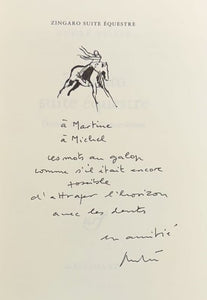 ZINGARO SUITE ÉQUESTRE
à Martine
à Michel
ces mots au galop
comme s'il était encore
possible
d'attraper l'horizon
avec les dents
en amitié